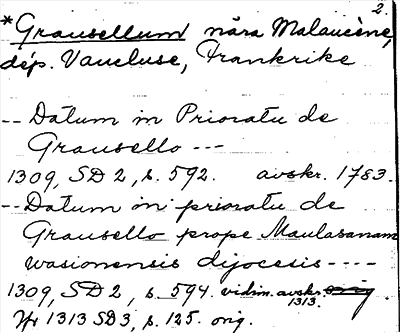 2.
*Grausellum nära Malaucène,
dép. Vaucluse, Frankrike
-- Datum in Prioratu de
Grausello ---
1309, SD 2, s. 592. avskr. 1783.
-- Datum in prioratu de
Grausello prope Maulasanam
wasionensis dijocesis ----
1309, SD 2, s. 594. vidim. avskr. orig
1313.
Jfr 1313 SD3, s. 125. orig.